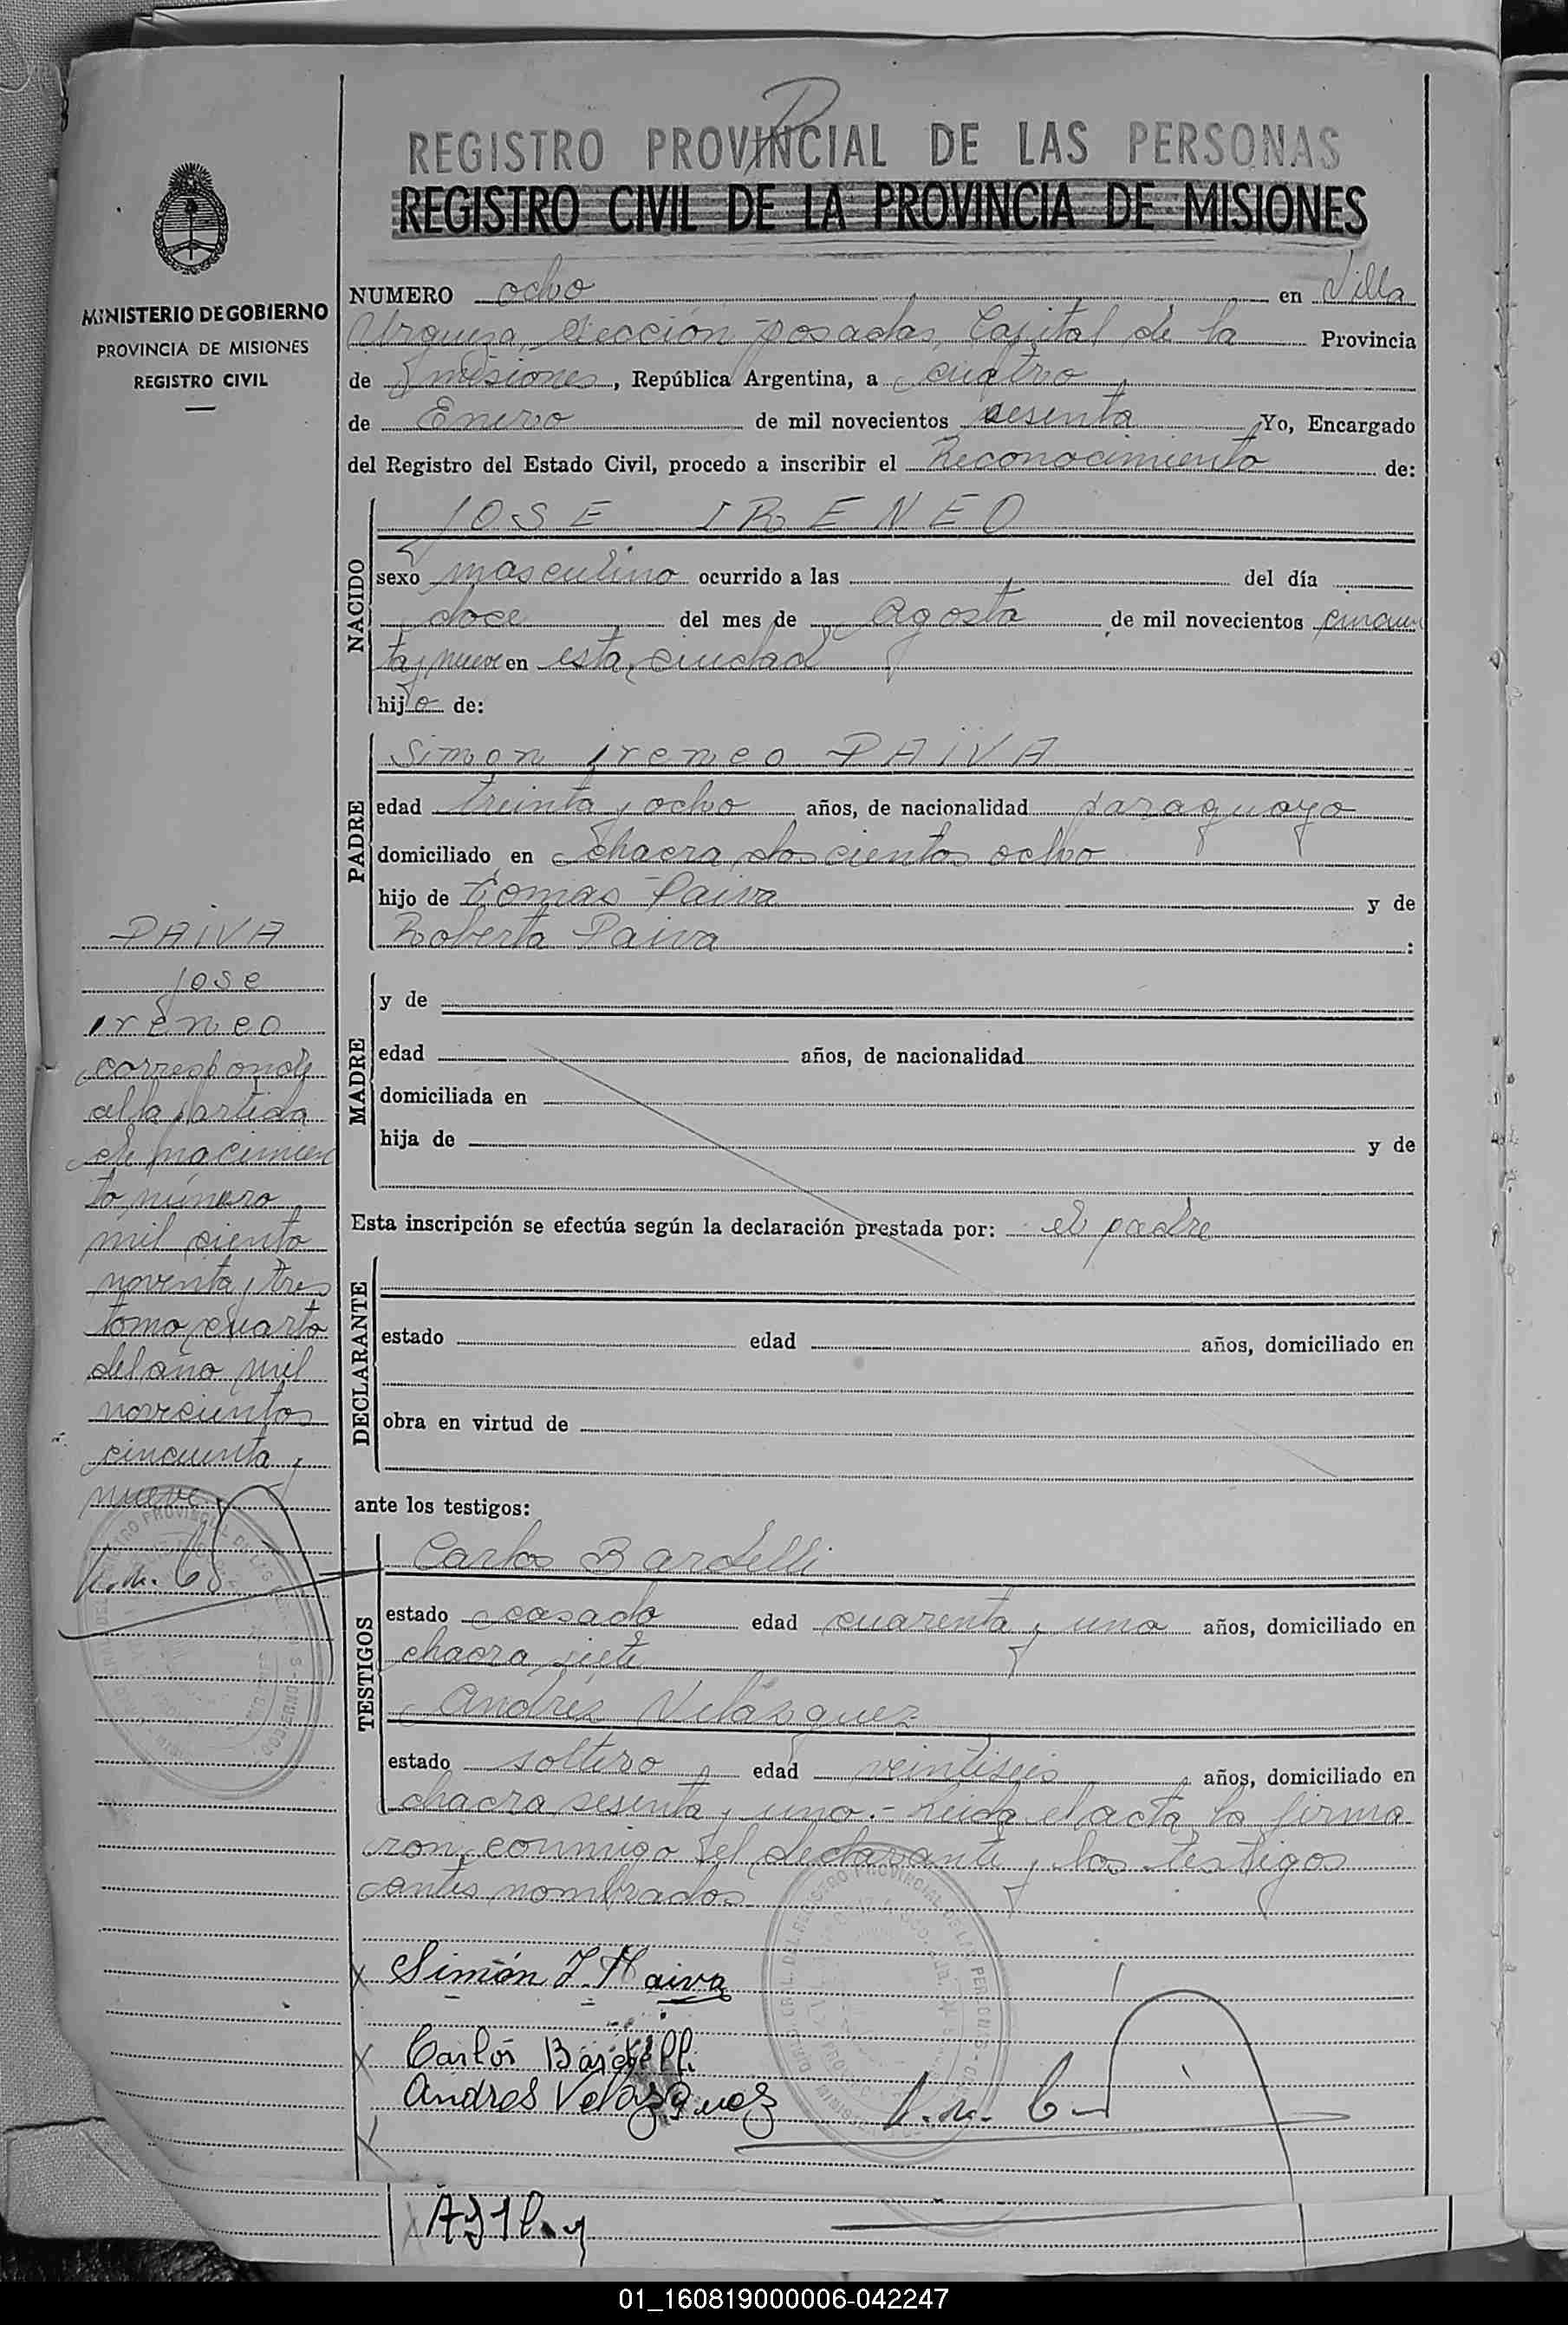 REGISTRO PROVINCIAL DE LAS PERSONAS
REGISTRO CIVIL DE LA PROVINCIA DE MISIONES
MINISTERIO DE GOBIERNO
PROVINCIA DE MISIONES
REGISTRO CIVIL
NUMERO ocho en Villa
Urquiza, Sección Posadas, Capital de la Provincia
de Misiones, República Argentina, a cuatro
de Enero de mil novecientos sesenta Yo, Encargado
del Registro del Estado Civil, procedo a inscribir el Reconocimiento de:
NACIDO
JOSE IRENEO
sexo masculino ocurrido a las del día
doce del mes de Agosto de mil novecientos cincuen
ta y nueve en esta ciudad
hijo de:
PADRE
Simon ireneo PAIVA
edad treinta y ocho años, de nacionalidad paraguayo
domiciliado en chacra doscientos ocho
hijo de Tomas Paiva y de
Roberta Paiva :
MADRE
y de
edad años, de nacionalidad
domiciliada en
hija de y de
Esta inscripción se efectúa según la declaración prestada por: el padre
DECLARANTE
estado edad años, domiciliado en
obra en virtud de
ante los testigos:
TESTIGOS
Carlos Bardelli
estado casado edad cuarenta y uno años, domiciliado en
chacra siete
Andrés Velásquez
estado soltero edad veintiseis años, domiciliado en
chacra sesenta y uno.- Leida el acta la firma
ron conmigo el declarante y los testigos
antes nombrados
Simón I. Paiva
Carlos Bardelli
Andres Velazquez
PAIVA
jose
ireneo
corresponde
al la partida
de nacimien
to número
mil ciento
noventa y tres
tomo cuarto
del año mil
novecientos
cincuenta y
nueve.
01_160819000006-042247